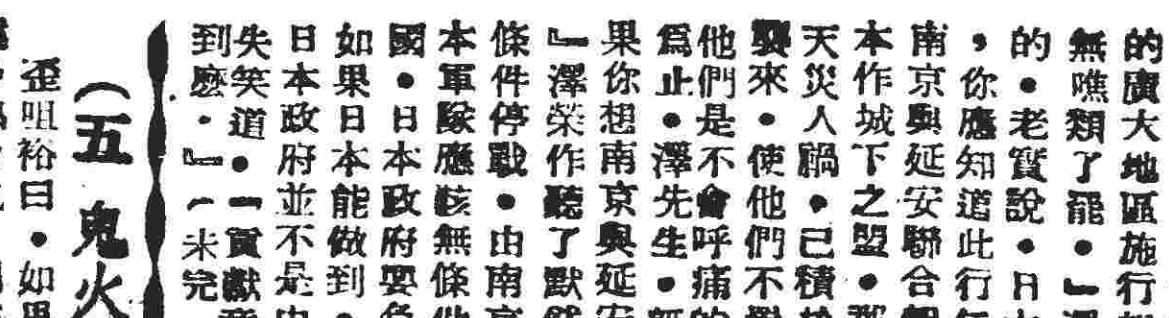 的廣大地區施行
無噍類了罷・』澤
的・老實說・日本
，你應知道此行
南京與延安聯合
本作城下之盟・那
天災人禍・已積
襲來・使他們不
他們是不會呼痛的
爲止・澤先生・
果你想南京與延安
』澤榮作聽了默然
條件停戰・由南京
本軍隊應該無條件
國・日本政府要負
如果日本能做到・
日本政府並不是
失笑道・一貢獻意
到麽・』（未完
（五 鬼火
歪咀裕曰・如果